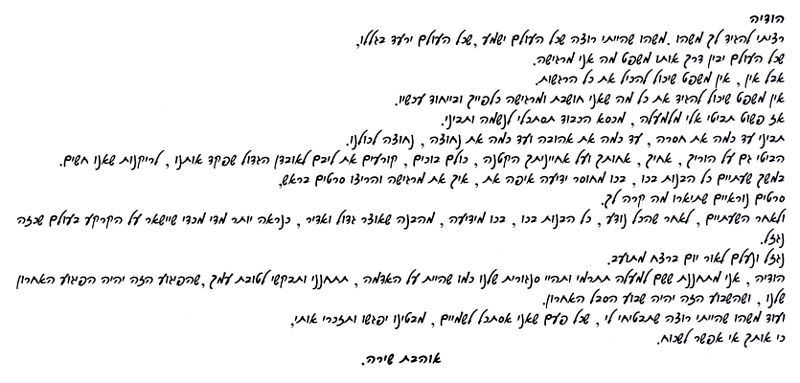 הודיה
רציתי להגיד לך משהו. משהו שהייתי רוצה שכל העולם ישמע, שכל העולם ירעד בגללו,
שכל העולם יבין דרך אותו משפט מה אני מרגישה.
אבל אין, אין משפט שיכול להכיל את כל הרגשות.
אין משפט שיכול להגיד את כל מה שאני חושבת ומרגישה כלפייך ובייחוד עכשיו.
אז פשוט תביטי אלי מלמעלה, מכסא הכבוד תסתכלי לנשמה ותביני.
תביני עד כמה את חסרה, עד כמה את אהובה ועד כמה את נחוצה, נחוצה לכולנו.
הביטי גם על הוריך, אחיך, אחותך ועל אחייניתך הקטנה, כולם בוכים, קורעים את ליבם לאובדן הגדול שפקד אותנו, לריקנות שאנו חשים.
במשך שעתיים כל הבנות בכו, בכו מחוסר ידיעה איפה את, איך את מרגישה והריצו סרטים בראש,
סרטים נוראיים שתיארו מה קרה לך.
ולאחר השעתיים, לאחר שהכל נודע, כל הבנות בכו, בכו מידיעה, מהבנה שאוצר גדול ואדיר, כנראה יותר מדי מכדי שיישאר על הקרקע בעולם שכזה
נגזל.
נגזל ונעלם לאור יום ברצח מתועב.
הודיה, אני מתחננת ששם למעלה תתרמי ותהיי סנגורית שלנו כמו שהיית על האדמה, תתחנני ותבקשי לטובת עמך, שהפגוע הזה יהיה הפגוע האחרון
שלנו, ושהשבוע הזה יהיה שבוע הסבל האחרון.
ועוד משהו שהייתי רוצה שתבטיחי לי, שכל פעם שאני אסתכל לשמיים, מבטינו יפגשו ותזכרי אותי,
כי אותך אי אפשר לשכוח.
אוהבת שירה.